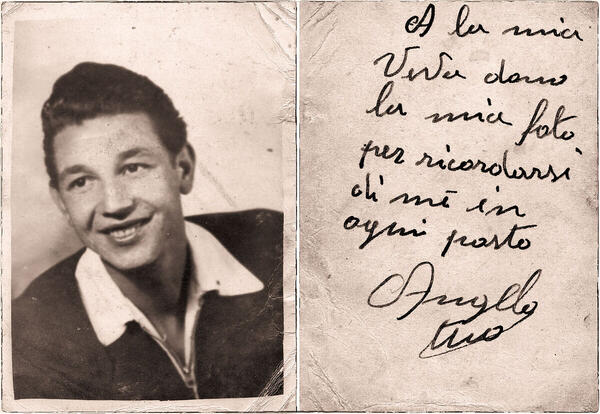 A la mia
Veva dono
la mia foto
per ricordarsi
di mè in
ogni posto
Angelo
tuo